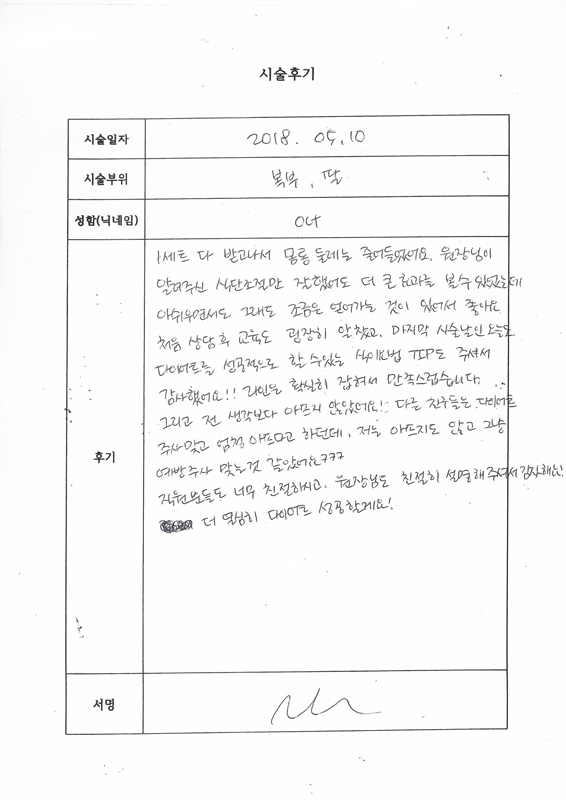 시술후기
시술일자 2018. 05. 10
시술부위 복부, 팔
성함(닉네임)
후기
1세트 다 받고나서 몸통 둘레는 줄어들었어요. 원장님이
알려주신 식단조절만 잘했어도 더 큰 효과를 볼수 있었는데
아쉬우면서도 그래도 조금은 얻어가는 것이 있어서 좋아요
처음 상담후 교육도 굉장히 알찼고, 마지막 시술날인 오늘도
다이어트를 성공적으로 할 수있는 식이요법 TIP도 주셔서
감사했어요!! 라인은 확실히 잡혀서 만족스럽습니다.
그리고 전 생각보다 아프지 않았어요!! 다른 친구들은 다이어트
주사맞고 엄청 아프다고 하던데, 저는 아프지도 않고 그냥
예방주사 맞는것 같았어요ㅋㅋㅋ
직원분들도 너무 친절하시고, 원장님도 친절히 설명해주셔서 감사해요!
더 열심히 다이어트 성공할게요!
서명